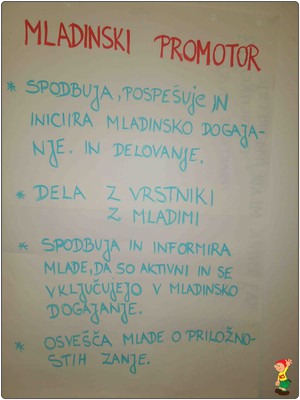 MLADINSKI PROMOTOR
* SPODBUJA, POSPEŠUJE IN
INICIIRA MLADINSKO DOGAJA-
NJE. IN DELOVANJE.
* DELA Z VRSTNIKI
Z MLADIMI
* SPODBUJA IN INFORMIRA
MLADE, DA SO AKTIVNI IN SE
VKLJUČUJEJO V MLADINSKO
DOGAJANJE.
* OSVEŠČA MLADE O PRILOŽNO-
STIH ZANJE.